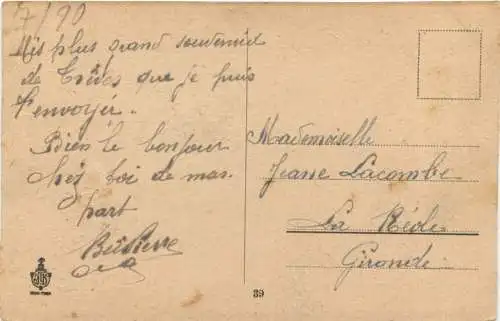 7/90
Mes plus grand souvenir
de Trêves que je puis
t'envoyer.
Bien le bonjour
chés toi de mas
part
Mademoiselle
Jeane Lacombe
La Réole
Gironde
39